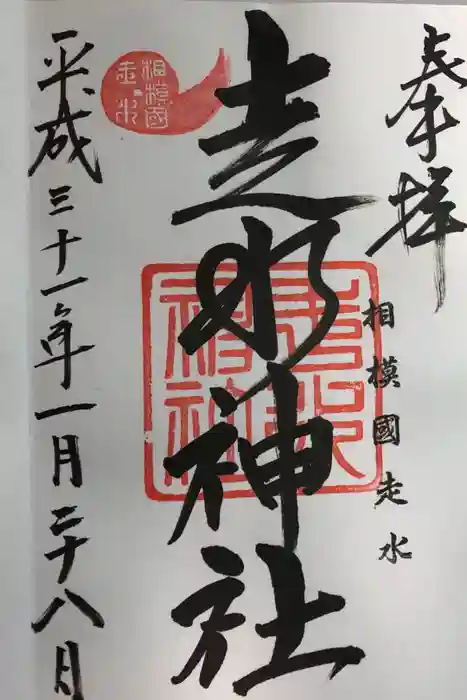 奉拝
相模國走水
走水神社
平成三十一年一月二十八日
相模國
走水
走水神社